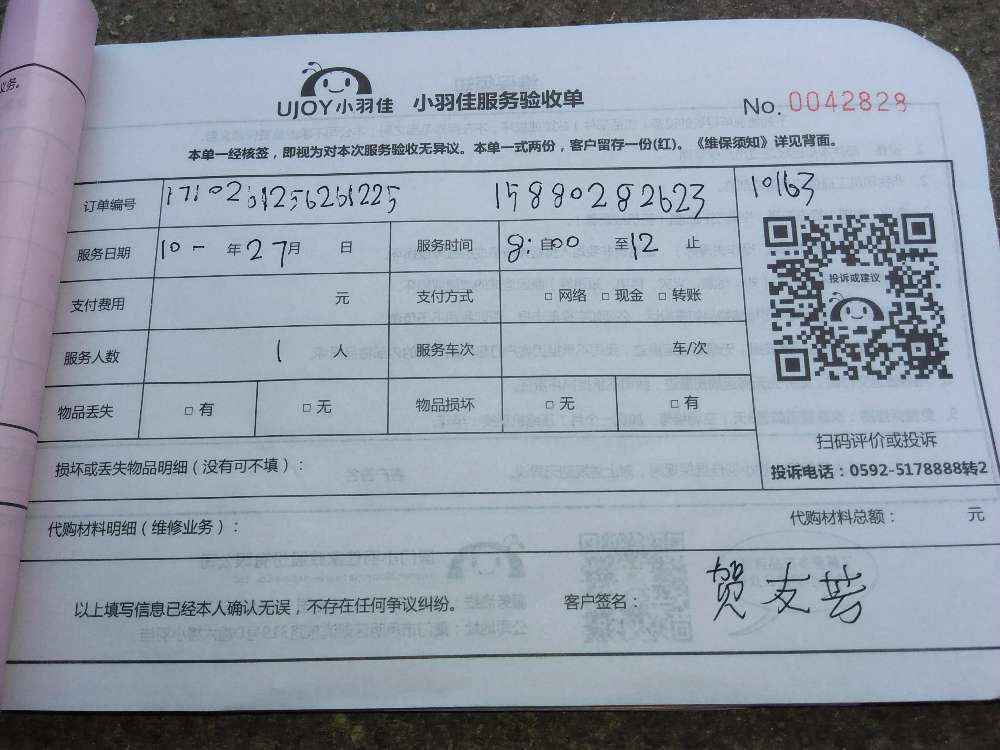 义务。
UJOY小羽佳 小羽佳服务验收单 No. 0042828
本单一经核签，即视为对本次服务验收无异议。本单一式两份，客户留存一份(红)。《维保须知》详见背面。
订单编号 1710261256261225 15880282623 10163
服务日期 10 - 年 27月 日 服务时间 8: 自00 至12 止
投诉或建议
支付费用 元 支付方式 □ 网络 □ 现金 □ 转账
服务人数 1 人 服务车次 车/次
物品丢失 □ 有 □ 无 物品损坏 □ 无 □ 有
扫码评价或投诉
投诉电话：0592-5178888转2
损坏或丢失物品明细（没有可不填）：
代购材料明细（维修业务）： 代购材料总额： 元
以上填写信息已经本人确认无误，不存在任何争议纠纷。 客户签名： 贺友芸